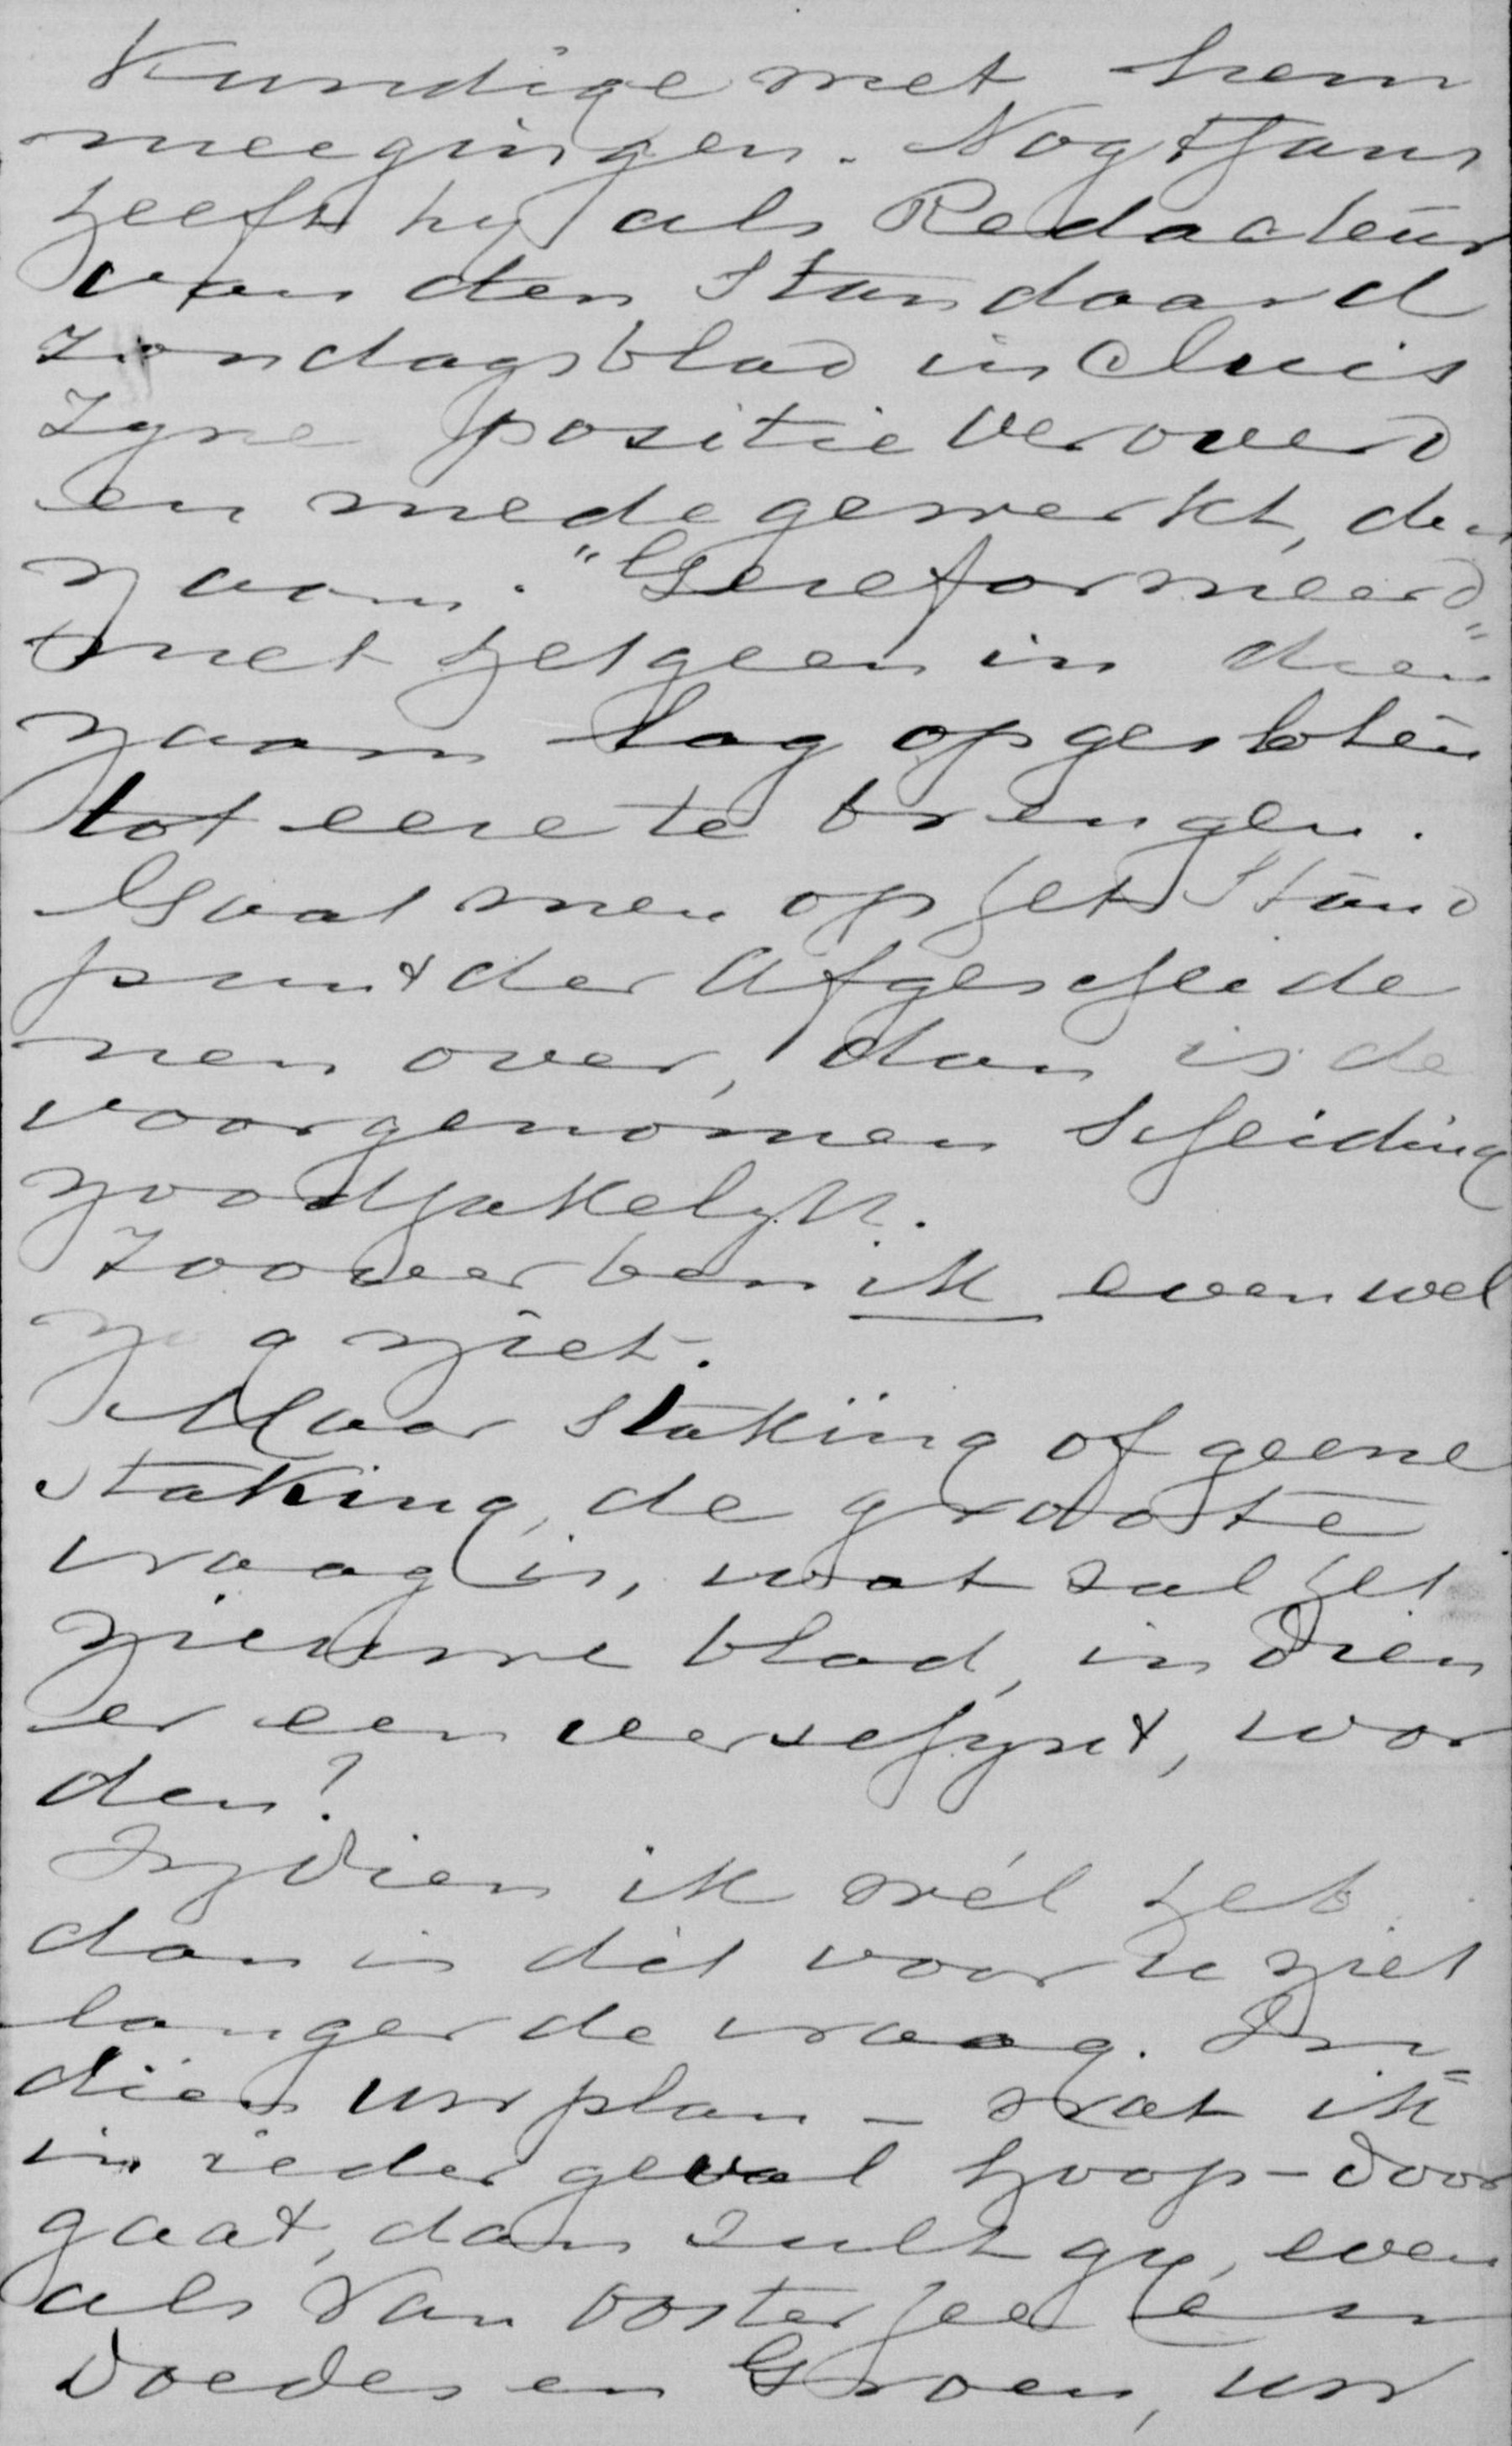 kundige met hem
meegingen. Nogthans
heeft hy als Redacteur
van den Standaard
Zondagsblad incluis
Zyne positie veroverd
en medegewerkt, den
naam "Gereformeerd"
met hetgeen in dien
naam lag opgesloten
tot eere te brengen.
Gaat men op het Stand
punt der Afgescheide
nen over, dan is de
voorgenomen Scheiding
noodzakelyk.
Zoover ben ik evenwel
nog niet.
Maar staking of geene
staking, de grootste
vraag is, wat zal het
nieuwe blad, indien
er een verschynt, wor
den?
Indien ik wél heb
dan is dit voor u niet
langer de vraag. In=
dien uw plan - wat ik
in ieder geval hoop - door
gaat, dan zult gy, even
als Van Oosterzee en
Doedes en Groen, uw